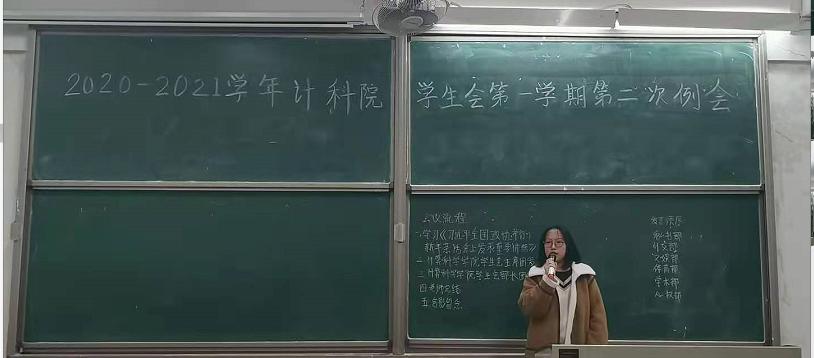 2020-2021学年计科院 学生会第一学期第二次例会
会议流程
一.学习《习近平全国政协
新年茶话会上发表重要讲
二.计算科学学院学生会主席团
三.计算科学学院学生会部长团
四.老师总结
五.合影留念
发言顺序
秘书部
外交部
文娱部
体育部
学术部